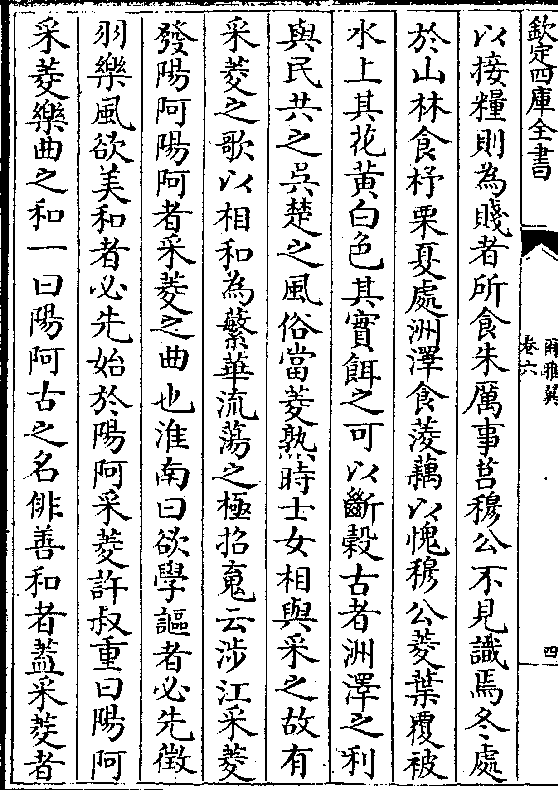 欽定四庫全書
爾雅翼
卷六
四
以接糧則為賤者所食朱厲事莒穆公不見識焉冬處
於山林食杼栗夏處洲澤食蔆藕以愧穆公菱葉覆被
水上其花黃白色其實餌之可以斷穀古者洲澤之利
與民共之吳楚之風俗當菱熟時士女相與采之故有
采菱之歌以相和為繁華流蕩之極招䰟云涉江采菱
發陽阿陽阿者采菱之曲也淮南曰欲學謳者必先徵
羽樂風欲美和者必先始於陽阿采菱許叔重曰陽阿
采菱樂曲之和一曰陽阿古之名俳善和者蓋采菱者